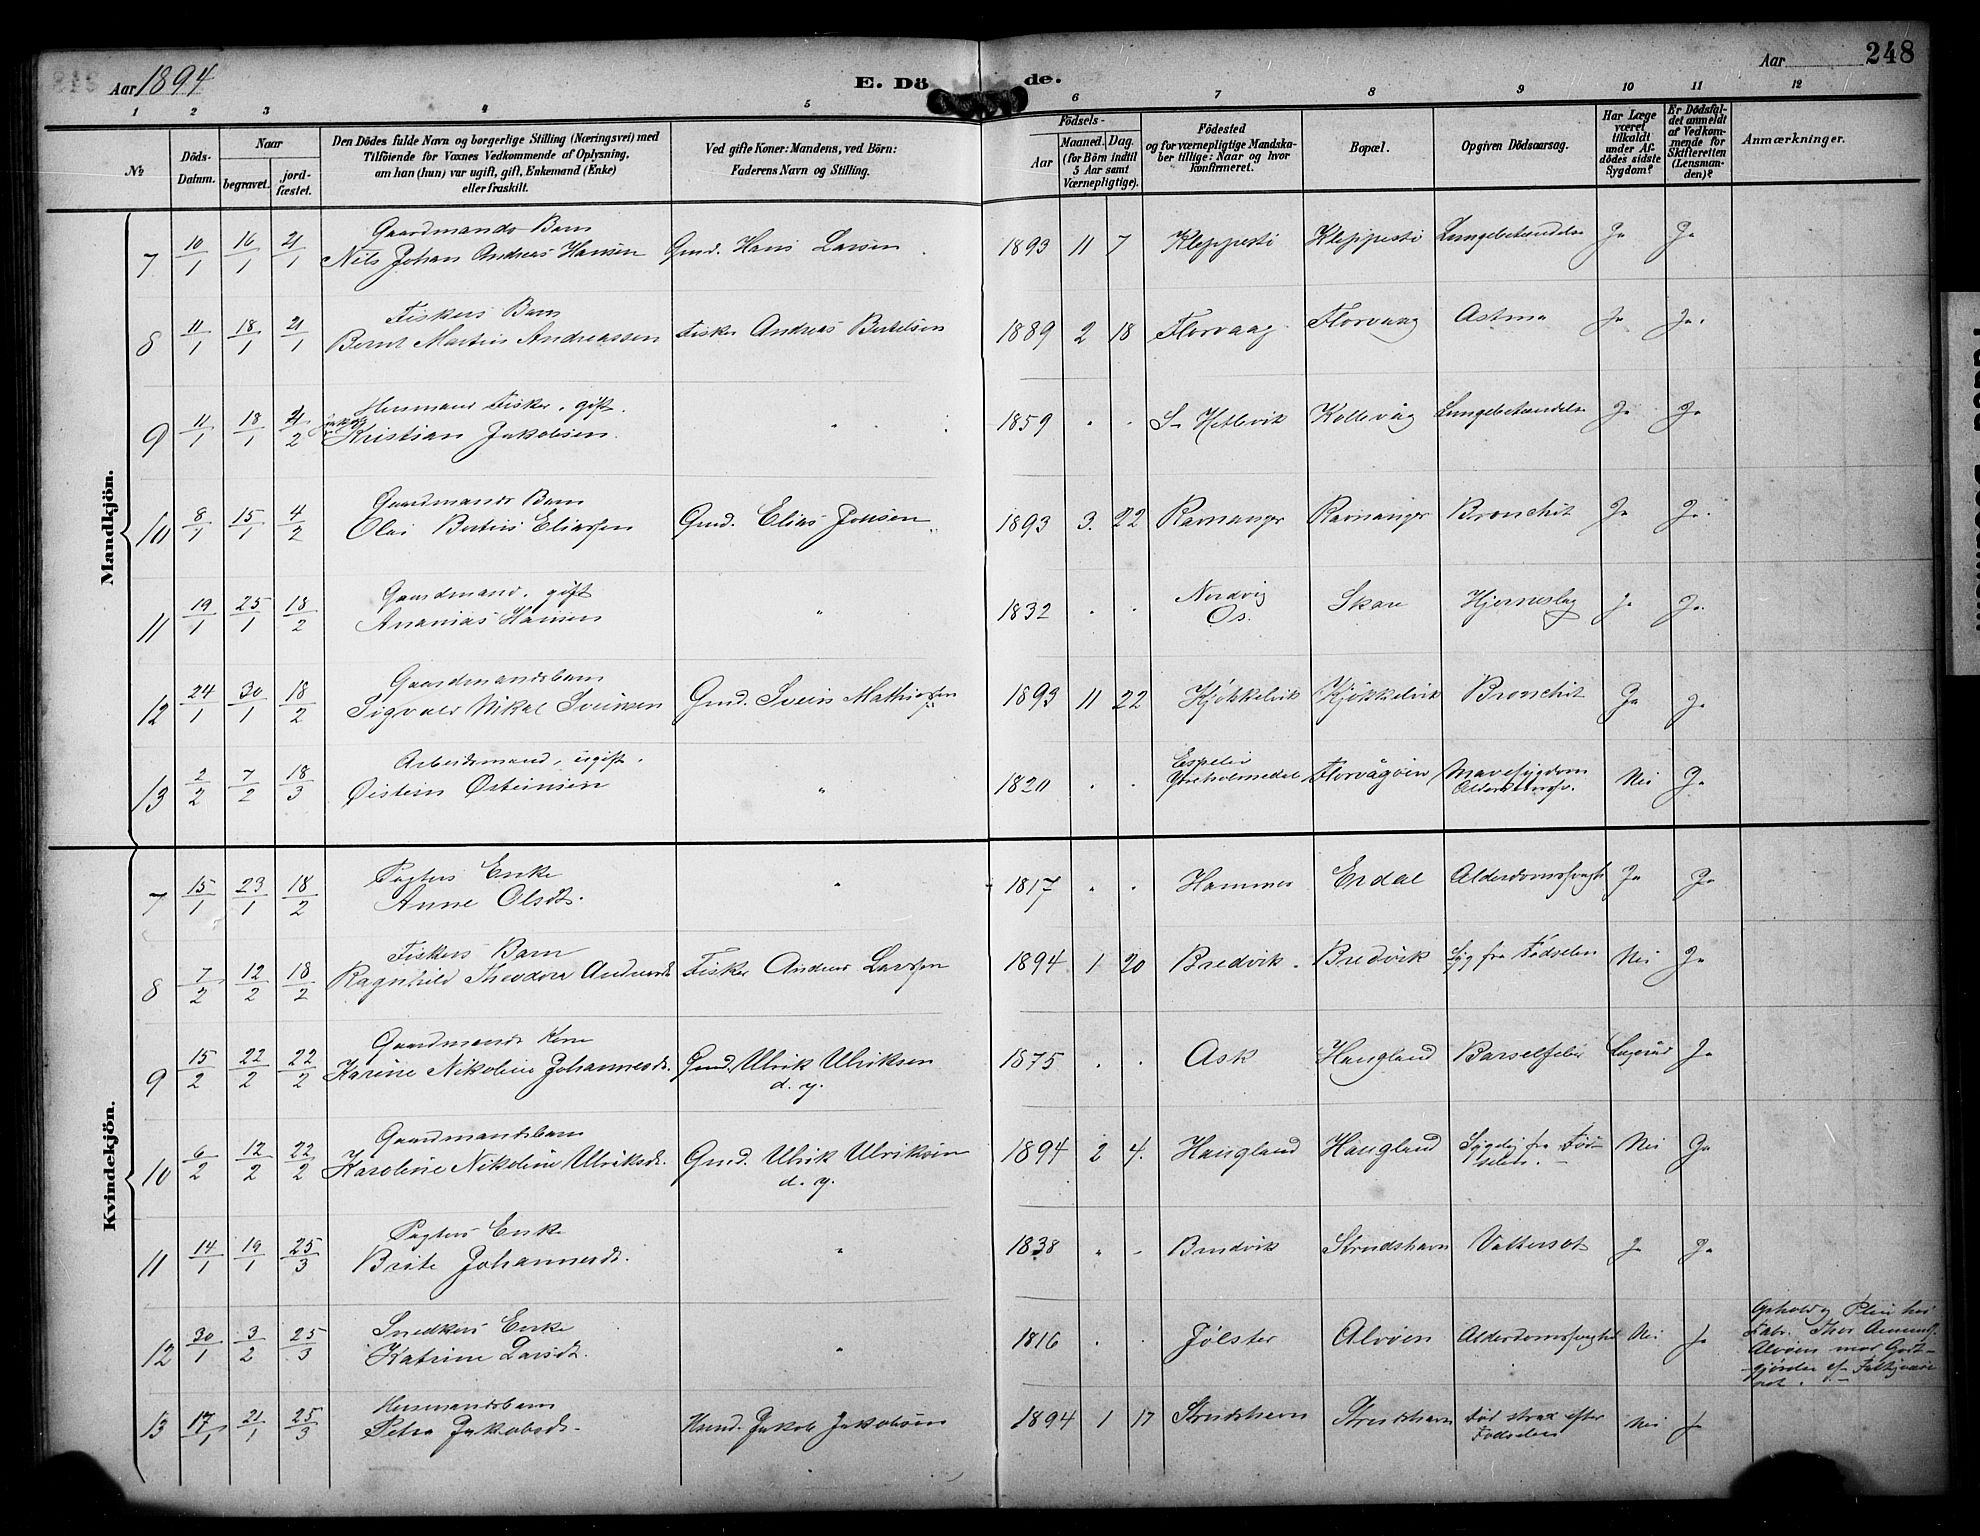 Aar 1894
E. Döde.
Aar 248
1 2 3 4 5 6 7 8 9 10 11 12
№
Döds-Datum.
Naar
begravet.
jord-fæstet.
Den Dödes fulde Navn og borgerlige Stilling (Næringsvei) med
Tilföiende for Voxnes Vedkommende af Oplysning,
om han (hun) var ugift, gift, Enkemand (Enke)
eller fraskilt.
Ved gifte Koner: Mandens, ved Börn:
Faderens Navn og Stilling.
Födsels-
Aar
Maaned. Dag.
(for Börn indtil
5 Aar samt
Værnepligtige).
Födested
og for værnepligtige Mandska-
ber tillige: Naar og hvor
konfirmeret.
Bopæl.
Opgiven Dödsaarsag.
Har Læge
været
tilkaldt
under Af-
dödes sidste
Sygdom?
Er Dödsfal-
det anmeldt
af Vedkom-
mende for
Skifteretten
(Lensman-
den)?
Anmærkninger.
Mandkjön.
Gaardmands Barn
7 10/1 16/1 21/1 Nils Johan Andreas Hansen Gmd. Hans Larsen 1893 11 7 Kleppestö Kleppestö Lungebetændelse Ja Ja
Fiskers Barn
8 11/1 18/1 21/1 Bernt Martin Andreassen Fisker Andreas Bertelsen 1889 2 18 Florvaag Florvaag Astma Ja Ja.
Husmand Fisker, gift.
9 11/1 18/1 21/2 Jakob Kristian Jakobsen. " 1859 " " S. Hetlevik Kollevåg Lungebetændelse Ja Ja
Gaardmands Barn
10 8/1 15/1 4/2 Olai Bertin Eliassen Gmd. Elias Jonsen 1893 3. 22 Ravnanger Ravnanger Bronchit Ja Ja.
Gaardmand, gift
11 19/1 25/1 18/2 Ananias Hansen " 1832 " " Nordvig Os. Skare Hjerneslag Ja Ja.
Gaardmandsbarn
12 24/1 30/1 18/2 Sigvald Nikal Sveinsen Gmd. Svein Mathiassen 1893 11 22 Kjökkelvik Kjökkelvik Bronchit Ja Ja
Arbeidsmand, ugift.
13 2/2 7/2 18/3 Östein Östeinsen " 1820 " " Espeliv Ytreholmedal Florvågöen Mavesygdom Nei Ja
Kvindekjön.
Pagters Enke
7 15/1 23/1 18/2 Anne Olsdt. " 1817 " " Hammer Erdal Alderdomssvagh Ja Ja
Fiskers Barn
8 7/2 12/2 18/2 Ragnhild Theodora Andreasdt Fisker Andreas Larsen 1894 1 20 Bredvik Bredvik Syg fra Födselen Nei Ja
Gaardmands Kone
9 15/2 22/2 22/2 Karine Nikoline Johannesdt. Gmd. Ulrik Ulriksen d. y. 1875 " " Ask Haugland Barselfeber Ja
Gaardmandsbarn
10 6/2 12/2 22/2 Karoline Nikoline Ulriksdt. Gmd. Ulrik Ulriksen d. y. 1894 2 4. Haugland Haugland Sygelig fra Föd-
selen. Nei Ja
Pagters Enke
11 14/1 19/1 25/3 Brite Johannesdt. " 1838 " " Bredvik Strudshavn Vattersot Ja Ja
Snedkers Enke
12 30/1 3/2 25/3 Katrine Larsdt. " 1816 " " Jölster Alvöen Alderdomssvaghed Nei Ja
Husmandsbarn
13 17/1 21/1 25/3 Petra Jakobsdt. Husmd. Jakob Jakobsen 1894 1 17 Strudshavn Strudshavn Död strax efter
Födselen Nei Ja